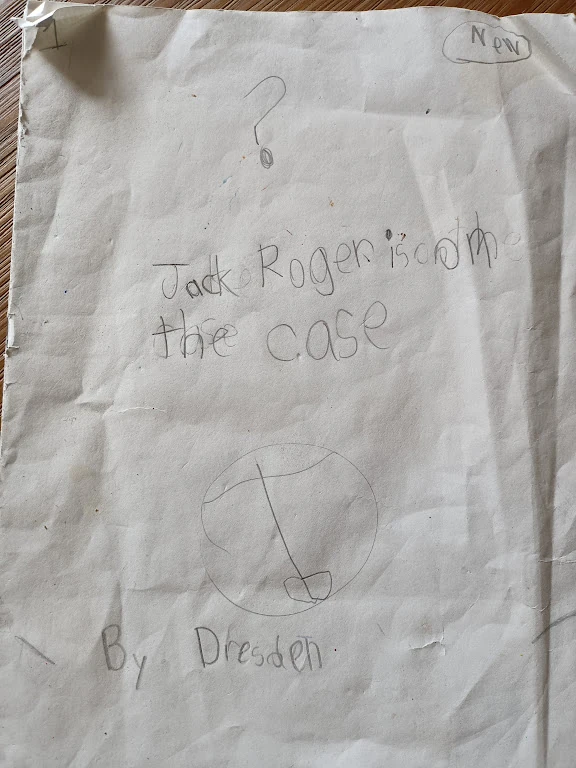 1
New
?
Jack Roger is on the
the case
By Dresden